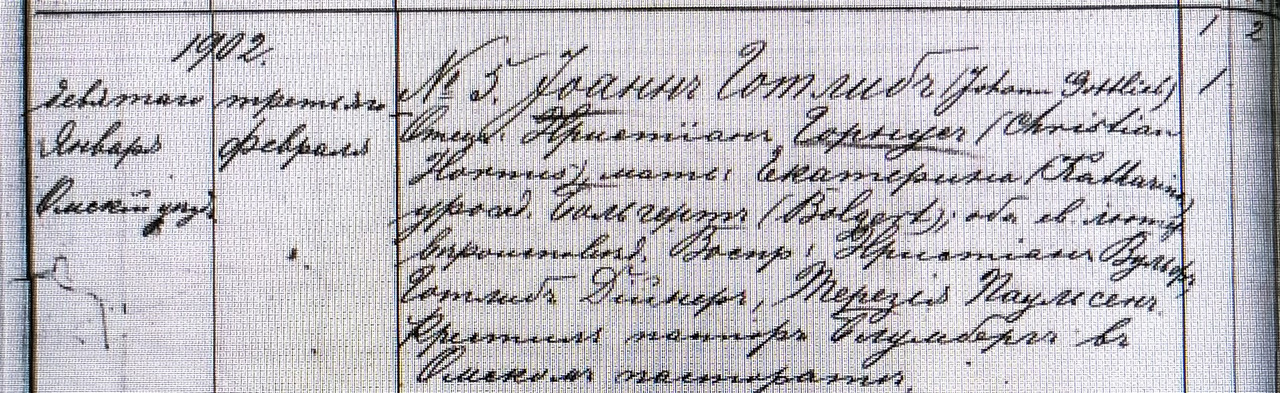 1902.
девятаго
Января
Омскій уѣздъ
третьяго
февраля
№ 5. Іоаннъ Готлибъ (Johann Gottlieb)
Отецъ: Христіанъ Горнусъ (Christian
Hornus), мать: Екатерина (Katharina)
урожд. Больгертъ (Bolgert), оба ев. лют.
вѣроисповѣд. Воспр: Христіанъ
Готлибъ Дійнеръ, Терезія Паульсенъ.
Крестилъ пасторъ Блумбергъ въ
Омскомъ пасторатѣ.
1
2
1